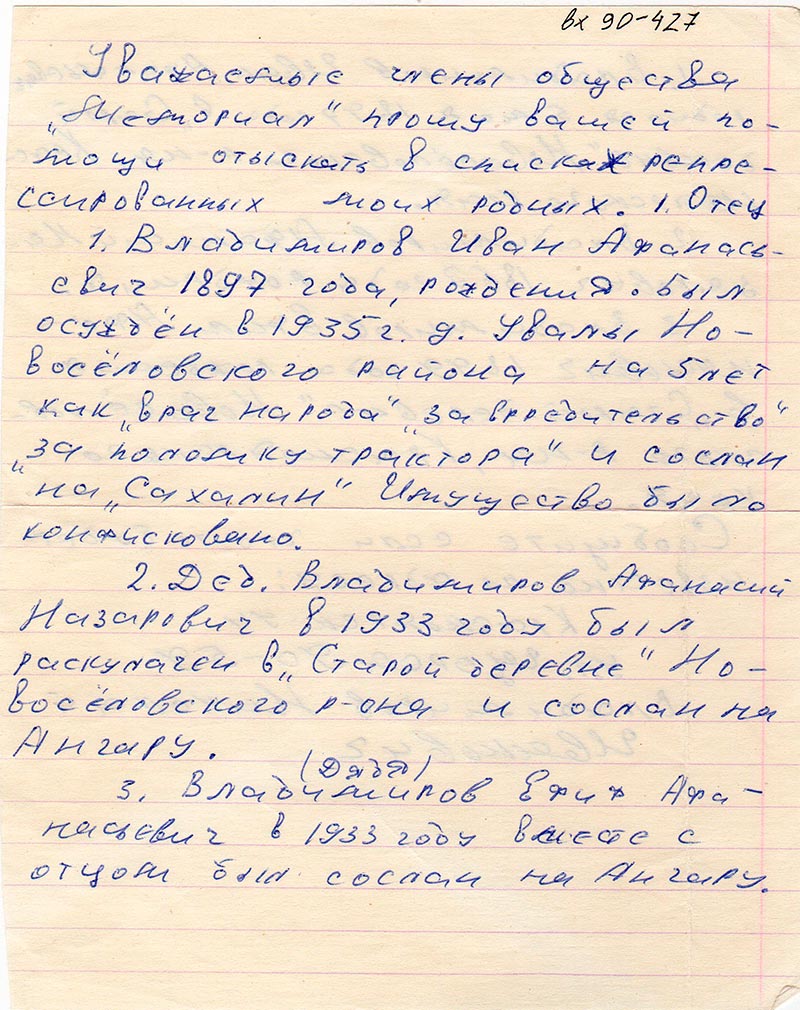 вх 90-427
Уважаемые члены общества
„Мемориал" прошу вашей по-
мощи отыскать в списках репре-
сированных моих родных. 1. Отец
1. Владимиров Иван Афанась-
евич 1897 года, рождения. был
осуждён в 1935 г. д. Увалы Но-
восёловского района на 5 лет
как „враг народа" „за вредительство"
„за поломку трактора" и сослан
на „Сахалин" Имущество было
конфисковано.
2. Дед. Владимиров Афанасий
Назарович в 1933 году был
раскулачен в „Старой деревне" Но-
восёловского р-она и сослан на
Ангару.
(Дядя)
3. Владимиров Ефим Афа-
насьевич в 1933 году вместе с
отцом был сослан на Ангару.